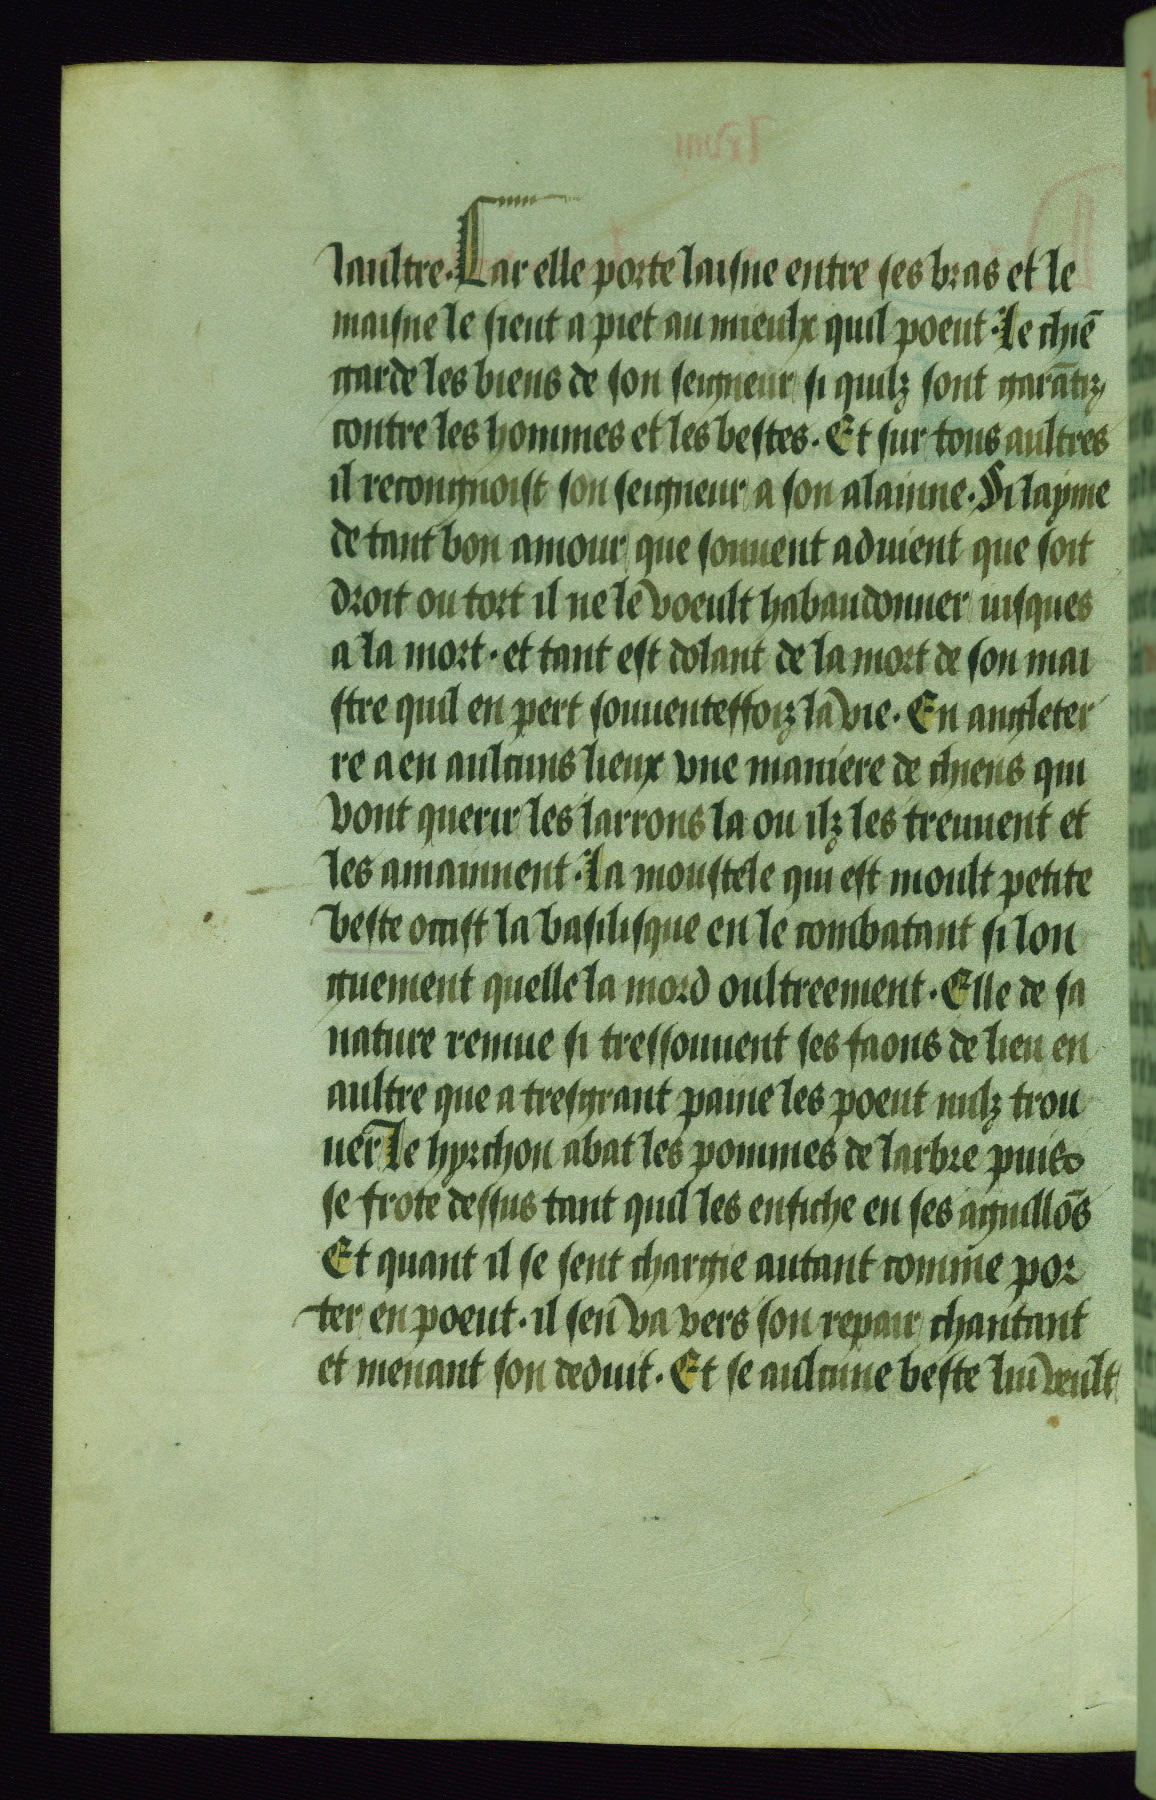 laultre. Car elle porte laisne entre ses bras et le
maisne le sieut a piet au mieulx quil poeut. Le chiē
garde les biens de son seigneur si quilz sont garātiz
contre les hommes et les bestes. Et sur tous aultres
il recongnoist son seigneur a son alainne. Si layme
de tant bon amour que souuent aduient que soit
droit ou tort il ne le voeult habandonner iusques
a la mort. et tant est dolant de la mort de son mai
stre quil en pert souuenteffoiz la vie. En angleter
re a en aulcuns lieux vne maniere de chiens qui
vont querir les larrons la ou ilz les treuuent et
les amainnent. La moustele qui est moult petite
beste occist la basilisque en le combatant si lon
guement quelle la mord oultreement. Elle de sa
nature remue si tressouuent ses faons de lieu en
aultre que a tresgrant paine les poeut nulz trou
uer Le hyrchon abat les pommes de larbre puis
se frote dessus tant quil les enfiche en ses aguillōs
Et quant il se sent chargie autant comme por
ter en poeut. il sen va vers son repair chantant
et menant son deduit. Et se aulcune beste lui veult